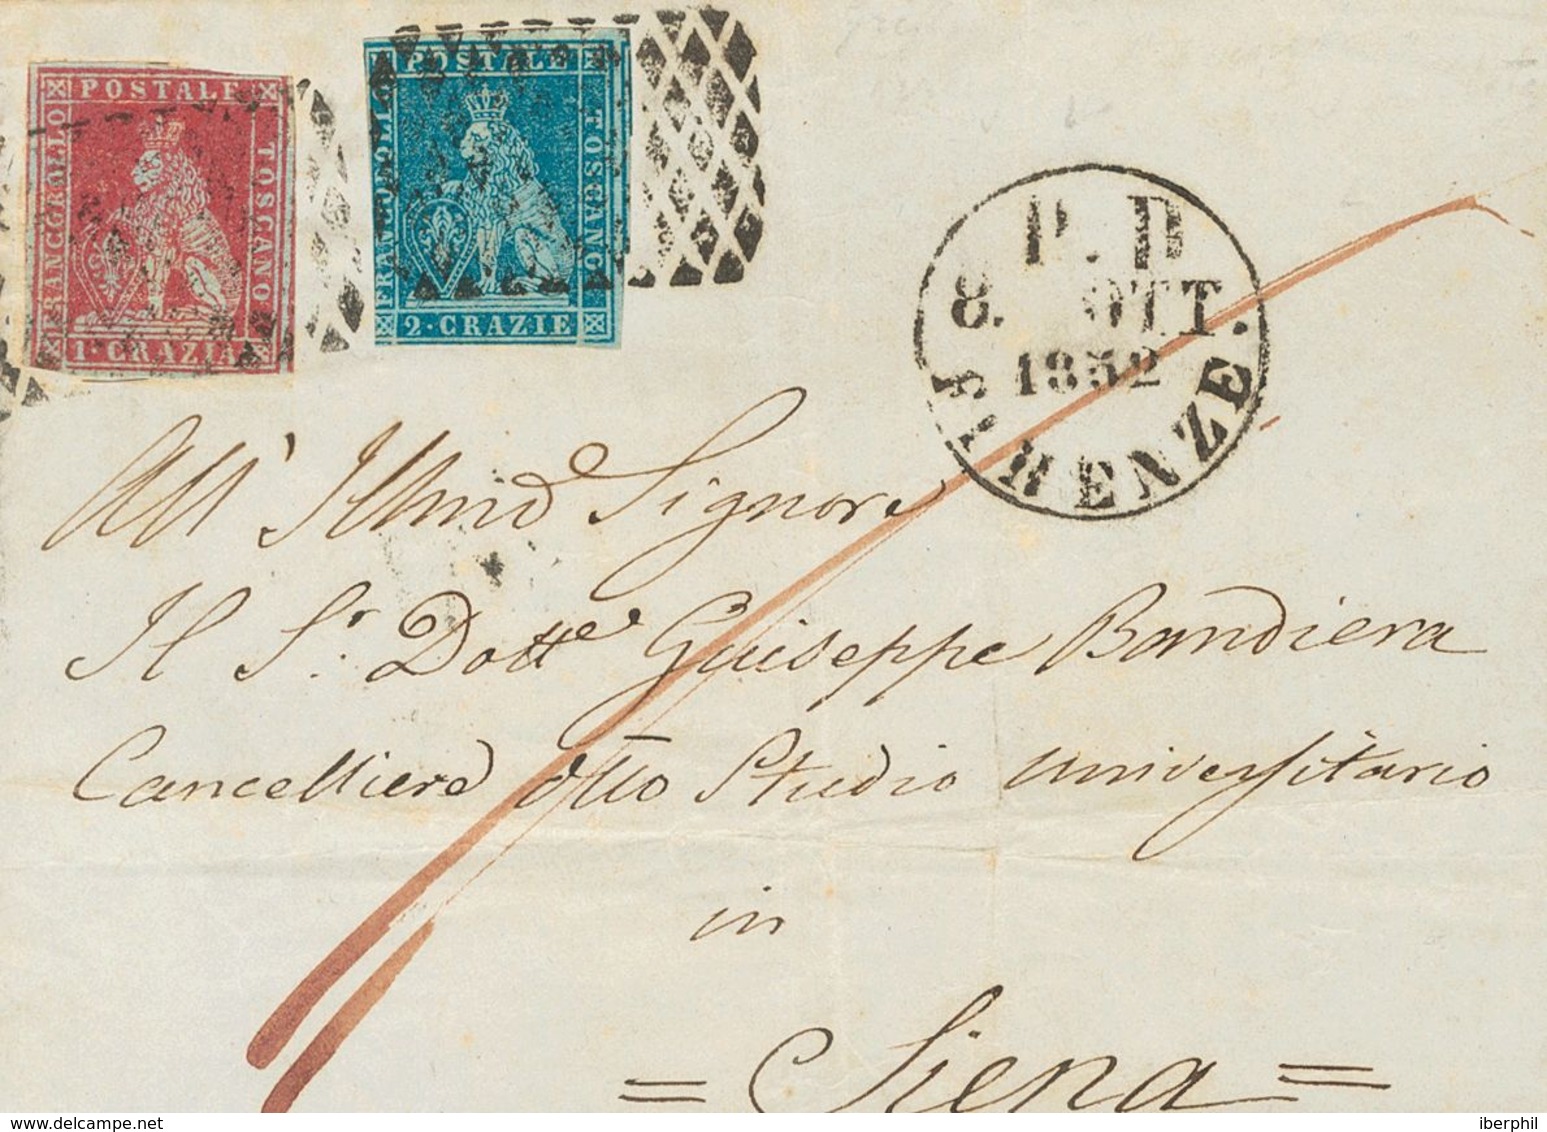 POSTALE
FRANCOBOLLO
TOSCANO
1·CRAZIA
POSTALE
TOSCANO
2·CRAZIE
P.D
8. OTT.
1852
FIRENZE
All' Illmo Signore
Il Sr. Dotte Guiseppe Bandiera
Cancelliere Studio universitario
in
= Siena =
delcampe.net
iberphil